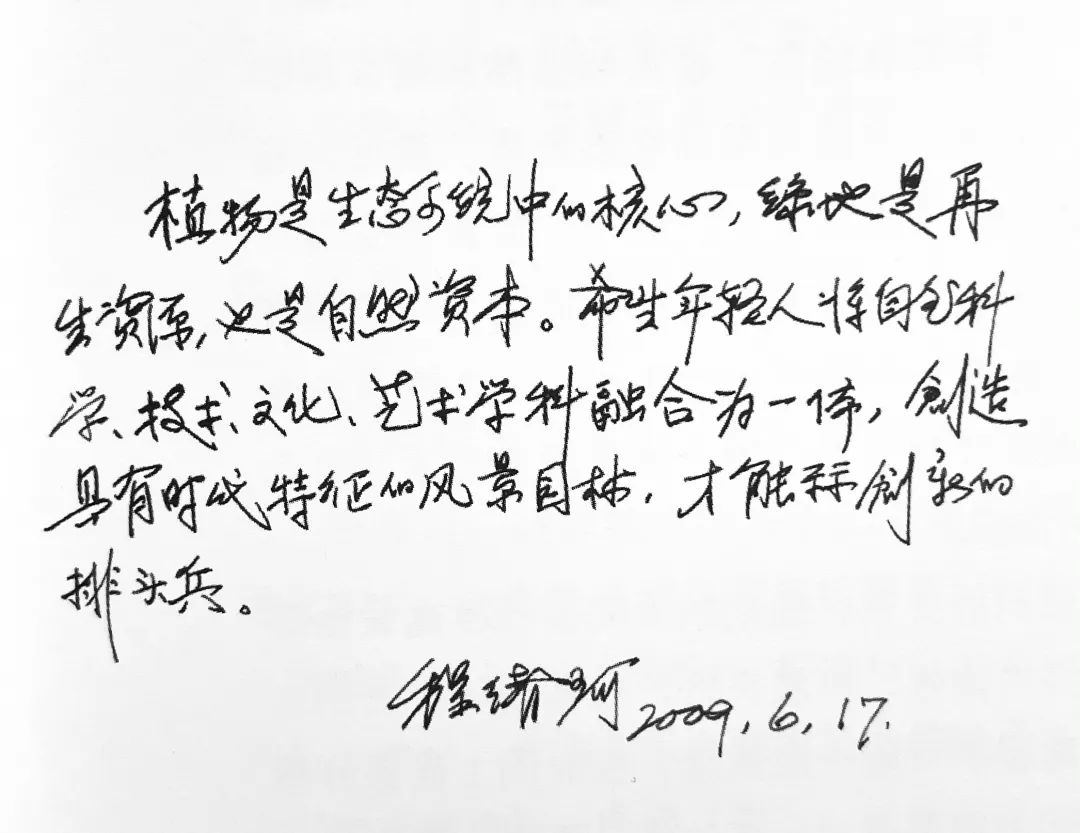 植物是生态系统中的核心,绿地是再
生资源,也是自然资本。希望年轻人将自然科
学、技术、文化、艺术学科融合为一体,創造
具有时代特征的风景园林,才能称創新的
排头兵。
程绪珂 2009.6.17.